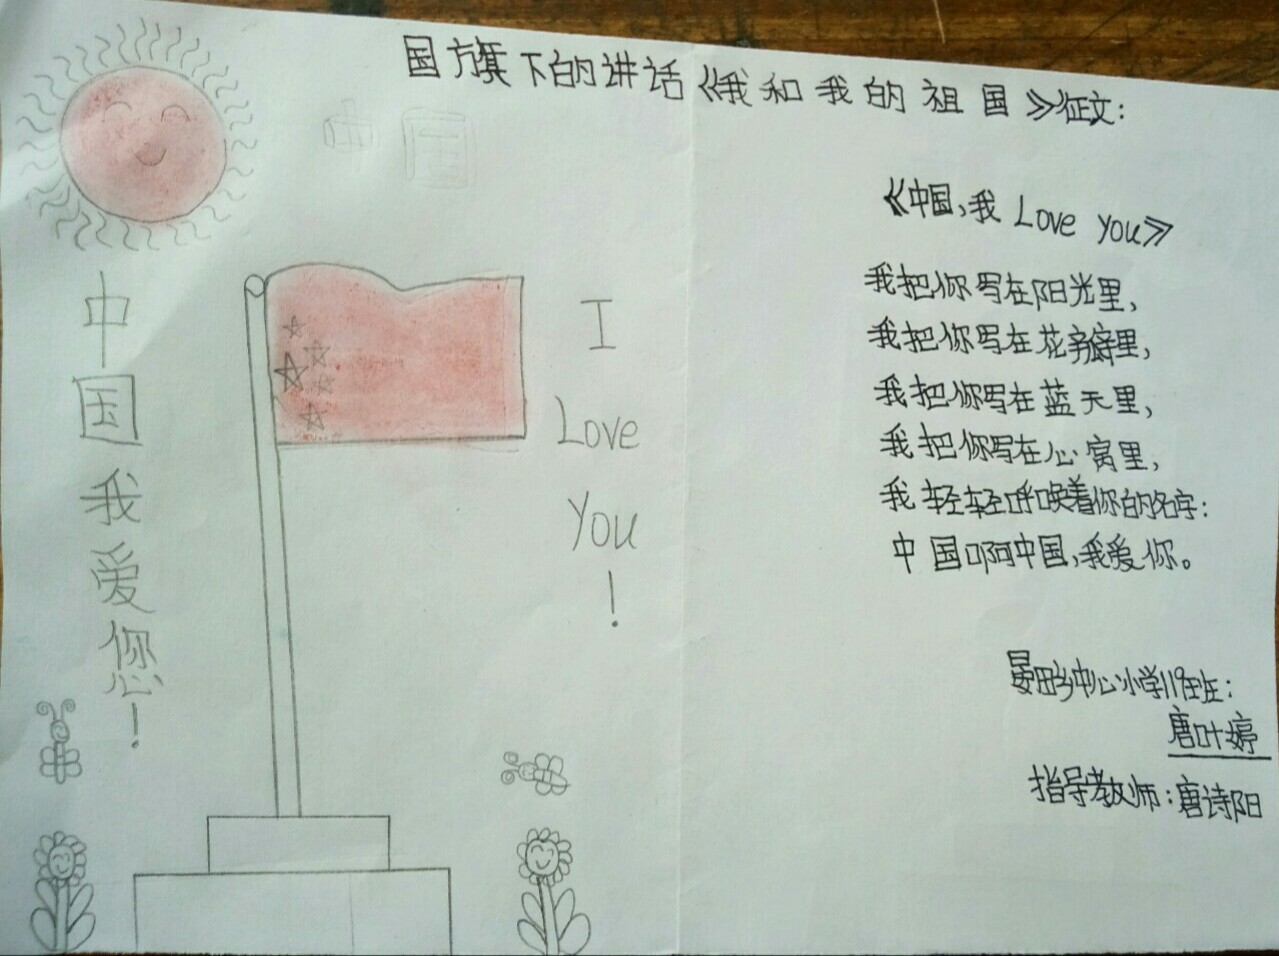 国旗下的讲话《我和我的祖国》征文:
中国
中国我爱您!
I
Love
You
!
《中国,我 Love you》
我把你写在阳光里,
我把你写在花瓣里,
我把你写在蓝天里,
我把你写在心窝里,
我轻轻呼唤着你的名字:
中国啊中国,我爱你。
唐叶婷
指导教师:唐诗阳